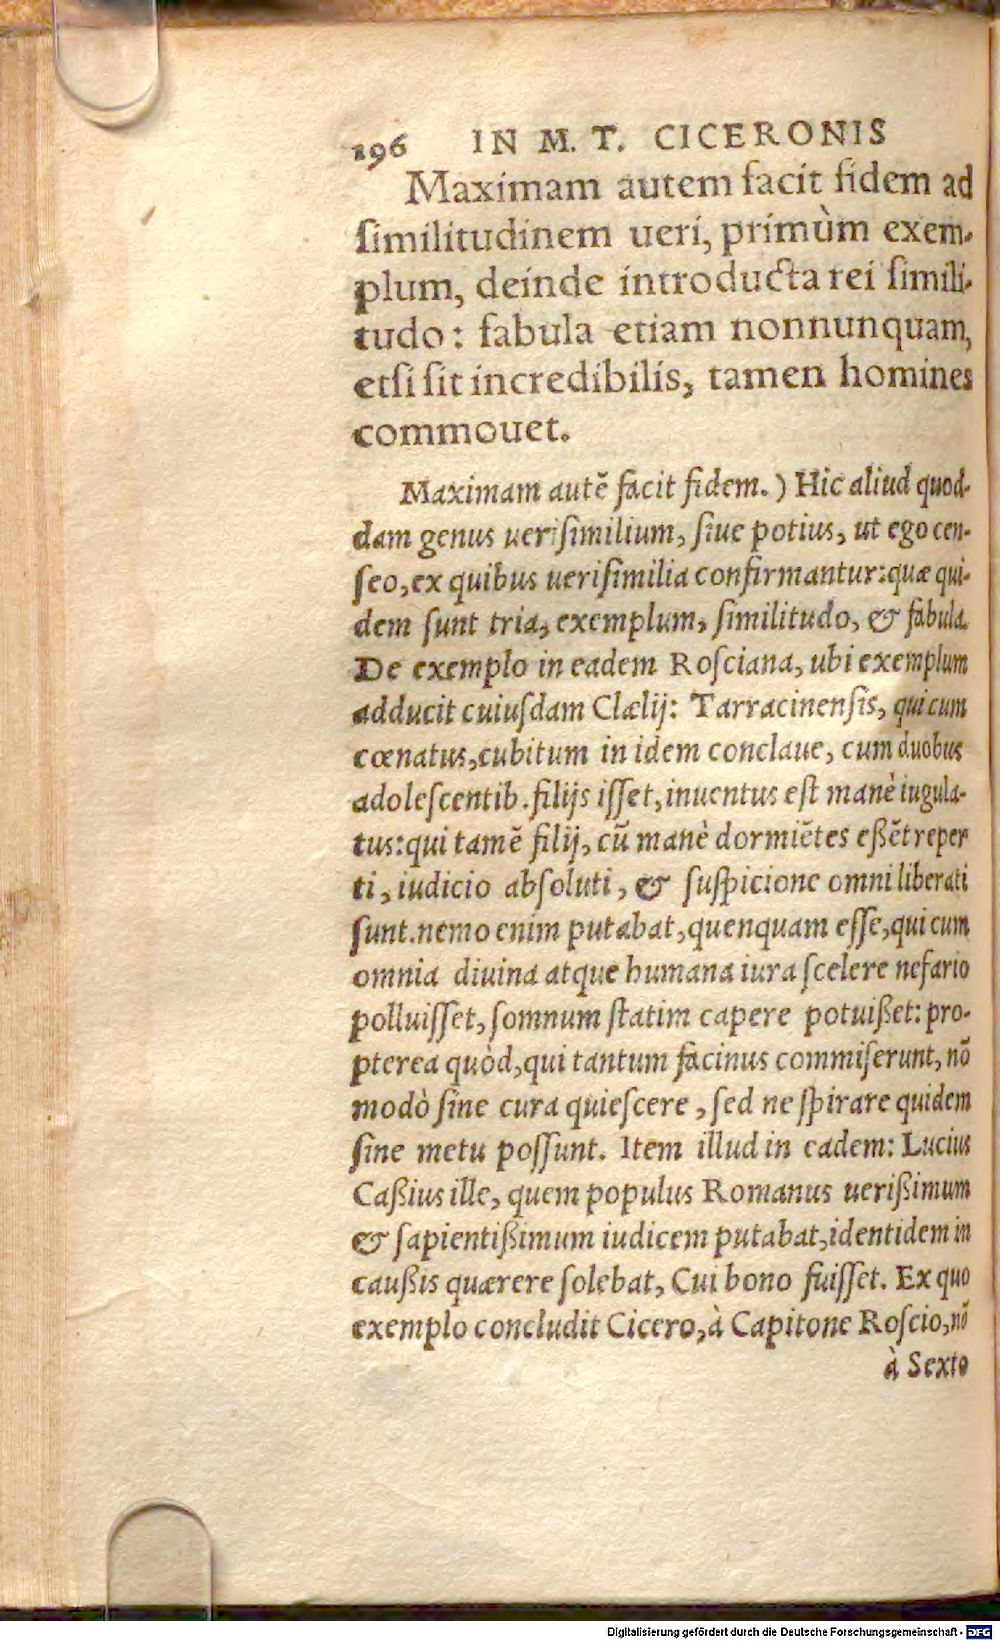 196 IN M. T. CICERONIS
Maximam autem facit fidem ad
similitudinem ueri, primùm exem-
plum, deinde introducta rei simili-
tudo: fabula etiam nonnunquam,
etsi sit incredibilis, tamen homines
commouet.
Maximam autẽ facit fidem.) Hic aliud quod-
dam genus uerisimilium, siue potius, ut ego cen-
seo, ex quibus uerisimilia confirmantur: quæ qui-
dem sunt tria, exemplum, similitudo, & fabula.
De exemplo in eadem Rosciana, ubi exemplum
adducit cuiusdam Clælij: Tarracinensis, qui cum
cœnatus, cubitum in idem conclaue, cum duobus
adolescentib. filijs isset, inuentus est manè iugula-
tus: qui tamẽ filij, cũ manè dormiẽtes eßẽt reper
ti, iudicio absoluti, & suspicione omni liberati
sunt. nemo enim putabat, quenquam esse, qui cum
omnia diuina atque humana iura scelere nefario
polluisset, somnum statim capere potuißet: pro-
pterea quòd, qui tantum facinus commiserunt, nõ
modò sine cura quiescere, sed ne spirare quidem
sine metu possunt. Item illud in eadem: Lucius
Caßius ille, quem populus Romanus uerißimum
& sapientißimum iudicem putabat, identidem in
caußis quærere solebat, Cui bono fuisset. Ex quo
exemplo concludit Cicero, à Capitone Roscio, nõ
à Sexto
Digitalisierung gefördert durch die Deutsche Forschungsgemeinschaft - DFG